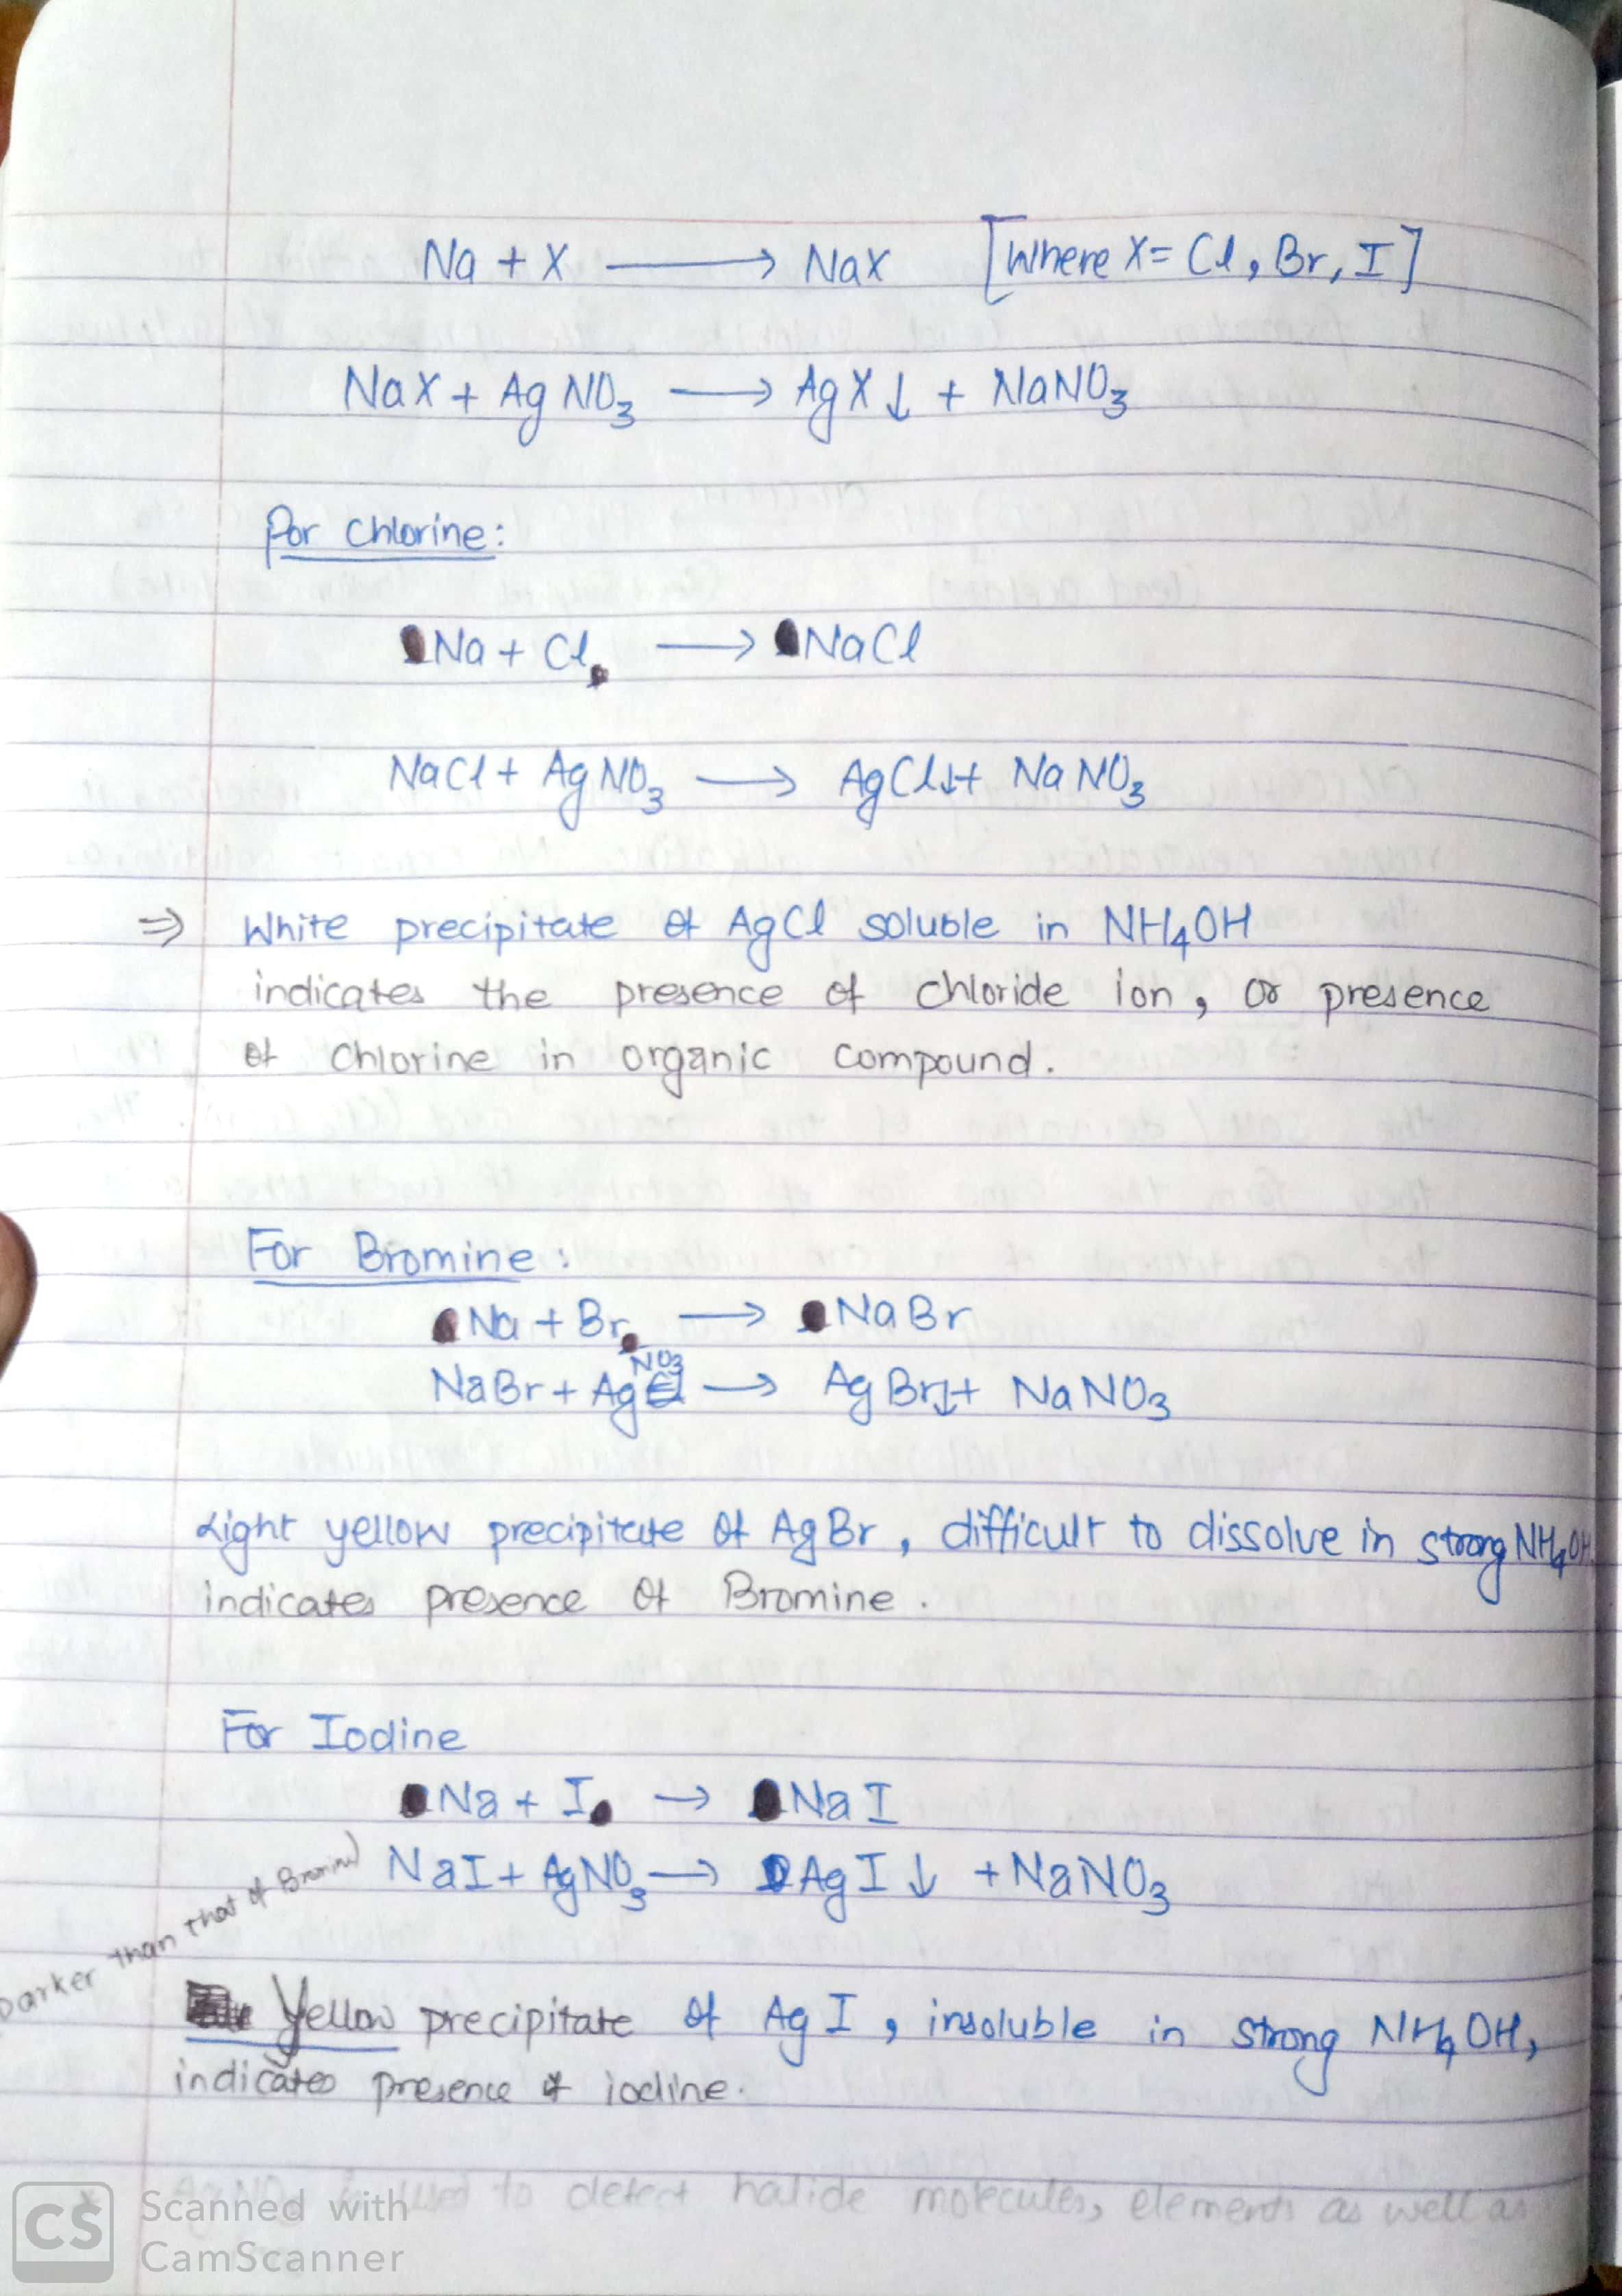 Na + X ⟶ NaX [Where X= Cl, Br, I]
NaX + AgNO₃ ⟶ AgX↓ + NaNO₃
For Chlorine:
Na + Cl ⟶ NaCl
NaCl + AgNO₃ ⟶ AgCl↓+ NaNO₃
⇒ White precipitate of AgCl soluble in NH₄OH
indicates the presence of chloride ion, or presence
of chlorine in organic compound.
For Bromine:
Na + Br ⟶ NaBr
NaBr + AgNO₃ ⟶ AgBr↓+ NaNO₃
Light yellow precipitate of AgBr, difficult to dissolve in strong NH₄OH
indicates presence of Bromine.
For Iodine
Na + I → NaI
NaI + AgNO₃ → AgI↓ + NaNO₃
Darker than that of Bromine)
Yellow precipitate of AgI, insoluble in strong NH₄OH,
indicates presence of iodine.
AgNO₃ is used to detect halide molecules, elements as well as
CS Scanned with
CamScanner